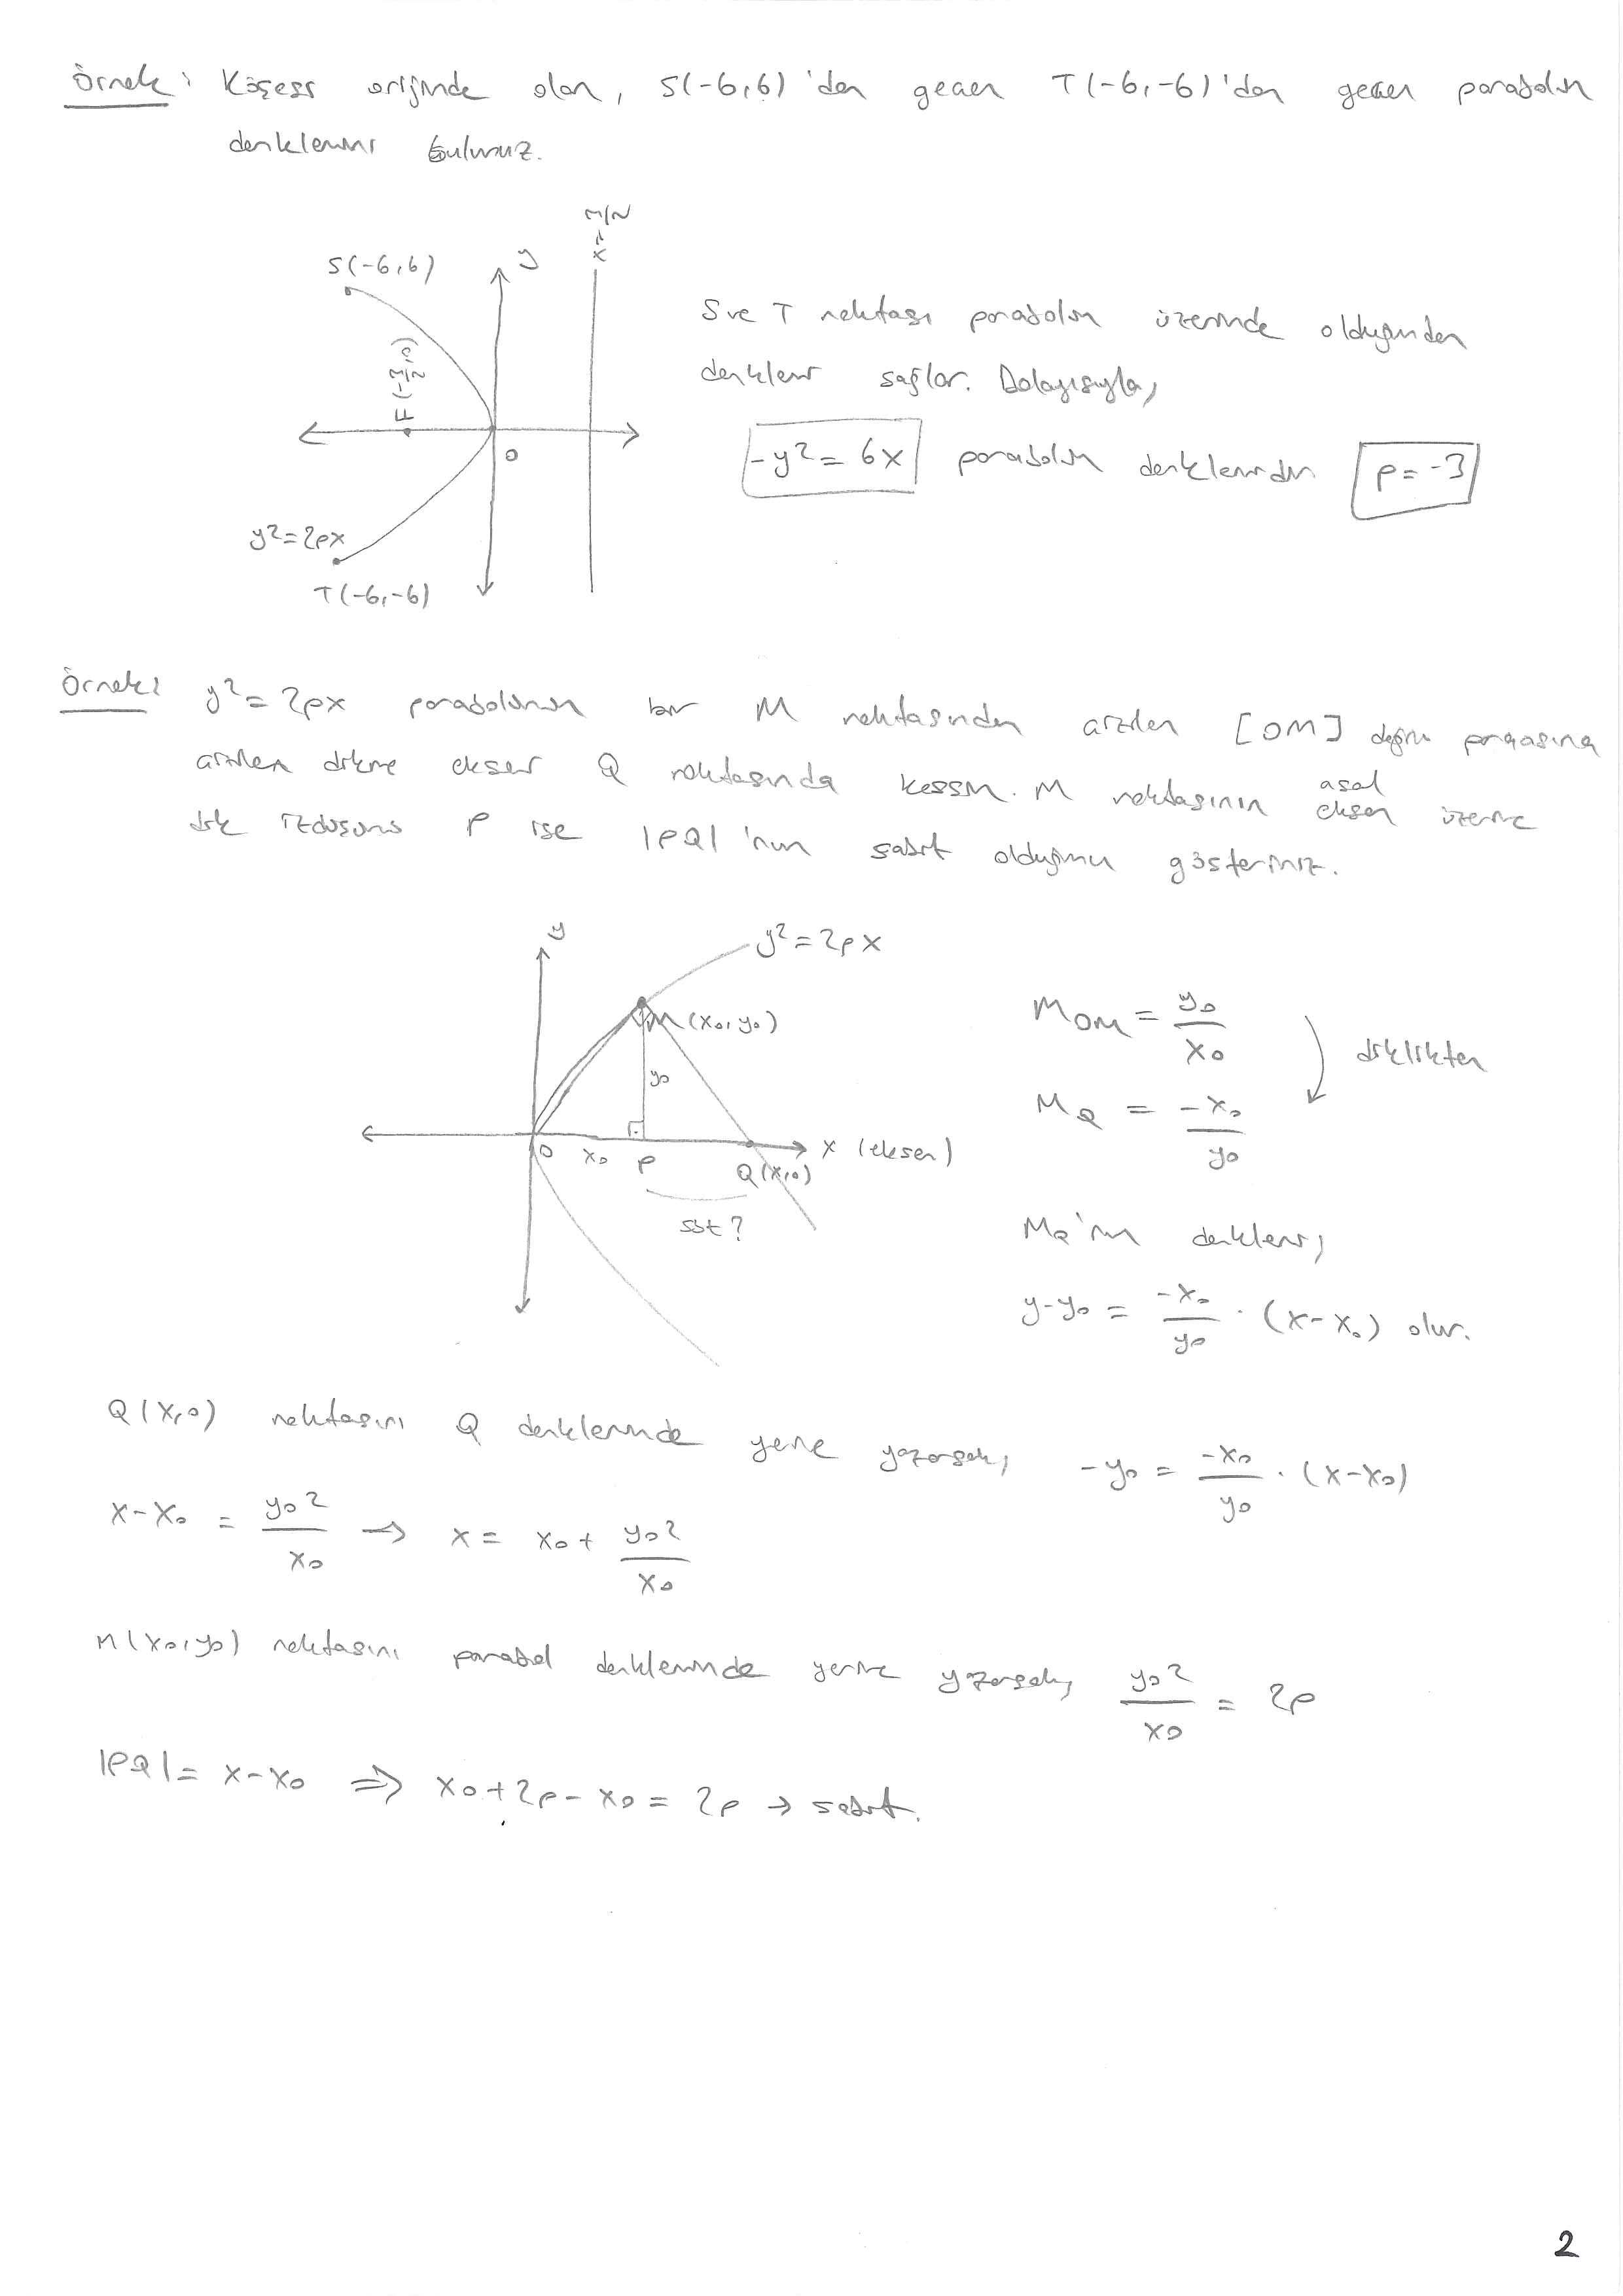 Örnek: Köşesi orijinde olan, S(-6,6)'dan geçen T(-6,-6)'dan geçen parabolün
denklemini bulunuz.
S(-6,6)
y
F(-
O
y²=2px
T(-6,-6)
S ve T noktası parabolün üzerinde olduğundan
denklemi sağlar. Dolayısıyla,
-y²=6x parabolün denklemidir. p=-3
Örnek: y²=2px parabolünün bir M noktasından çizilen [OM] doğru parçasına
çizilen dikme ekseni Q noktasında kessin. M noktasının asal eksen üzerine
dik izdüşümü P ise |PQ|'nun sabit olduğunu gösteriniz.
y
y²=2px
M(x₀,y₀)
y₀
O x₀ P Q(x,0) x (eksen)
sbt?
M_OM = y₀/x₀
diklikten
M_Q = -x₀/y₀
M_Q'nun denklemi,
y-y₀ = -x₀/y₀ · (x-x₀) olur.
Q(x,0) noktasını Q denkleminde yerine yazarsak, -y₀ = -x₀/y₀ · (x-x₀)
x-x₀ = y₀²/x₀ → x = x₀ + y₀²/x₀
M(x₀,y₀) noktasını parabol denkleminde yerine yazarsak, y₀²/x₀ = 2p
|PQ| = x-x₀ ⇒ x₀+2p-x₀ = 2p → sabit.
2